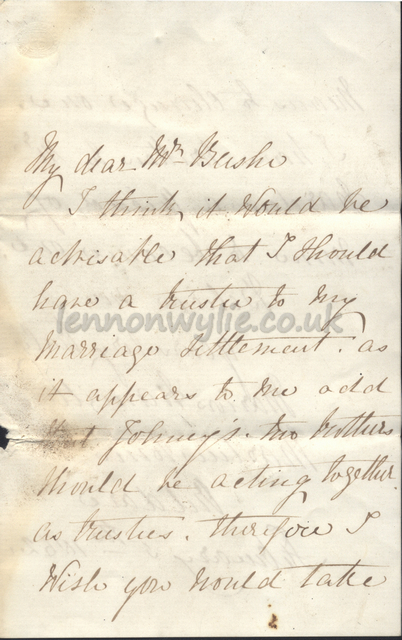 My dear Mr Beshe
I think it would be
advisable that I should
have a trustee to my
lennonwylie.co.uk
Marriage Settlement. as
it appears to me odd
that Johney's two brothers
should be acting together
as trustees. therefore I
Wish you would take